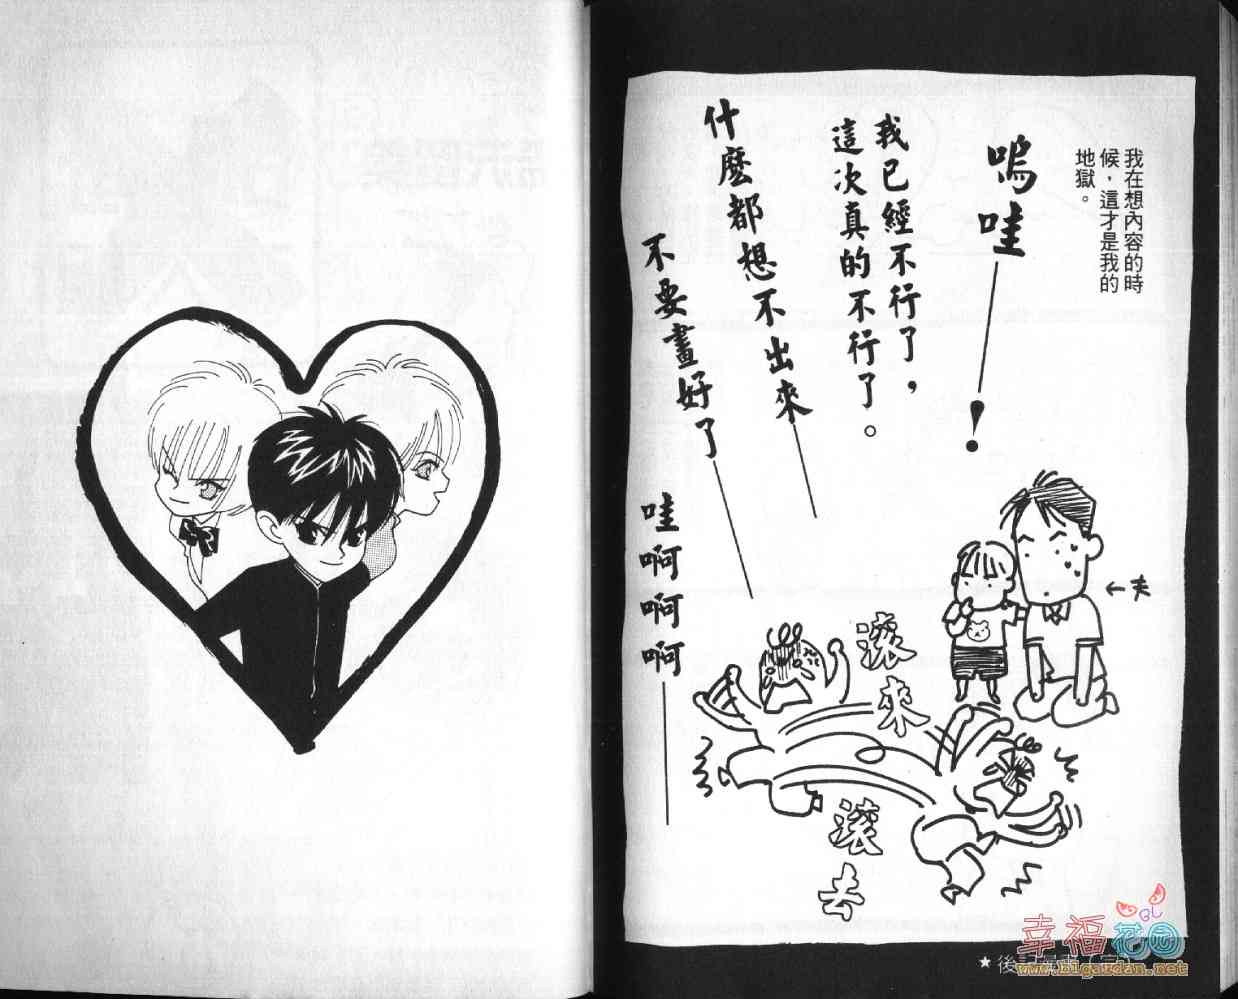 我在想內容的時
候，這才是我的
地獄。
嗚哇——！
我已經不行了，
這次真的不行了。
什麼都想不出來——
不要畫好了——
哇啊啊啊——
←夫
滾來
滾去
幸福花园
BL
www.blgardan.net
★後